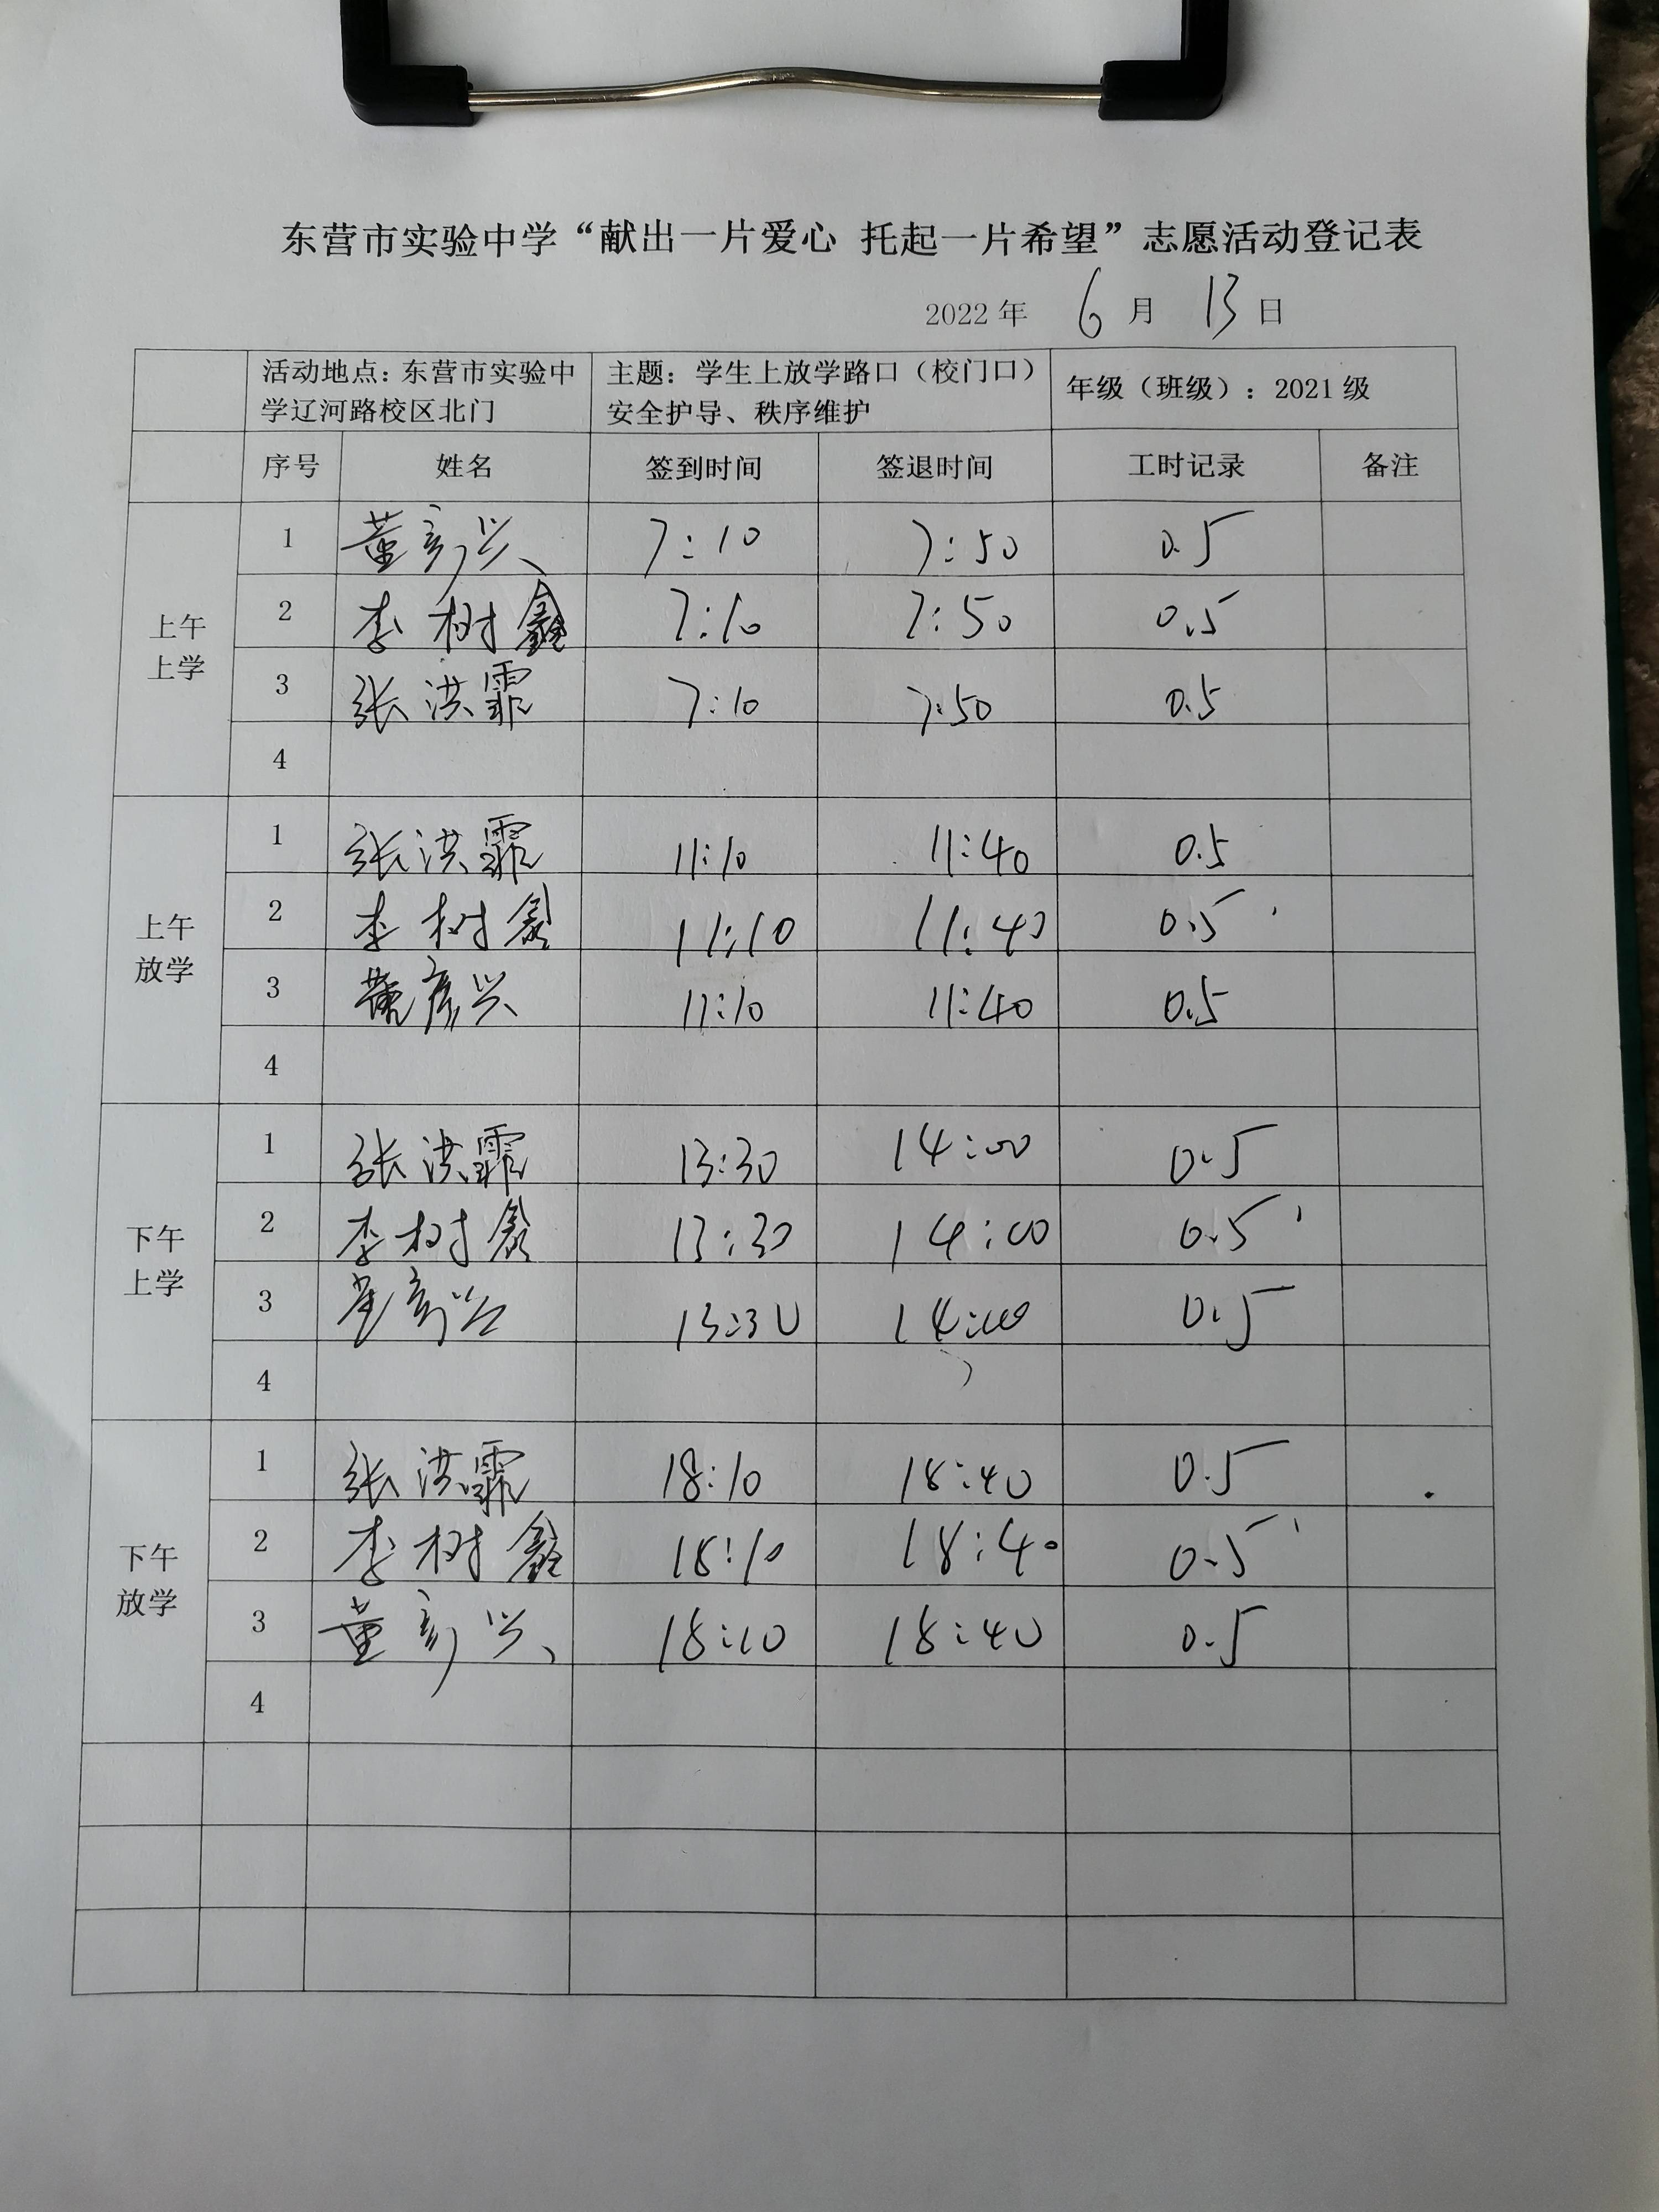 东营市实验中学“献出一片爱心 托起一片希望”志愿活动登记表
2022年 6月 13日
活动地点：东营市实验中学辽河路校区北门 主题：学生上放学路口（校门口）安全护导、秩序维护 年级（班级）：2021级
序号 姓名 签到时间 签退时间 工时记录 备注
上午上学
1 董彦兴 7:10 7:50 0.5
2 李树鑫 7:10 7:50 0.5
3 张洪霏 7:10 7:50 0.5
4
上午放学
1 张洪霏 11:10 11:40 0.5
2 李树鑫 11:10 11:40 0.5
3 董彦兴 11:10 11:40 0.5
4
下午上学
1 张洪霏 13:30 14:00 0.5
2 李树鑫 13:30 14:00 0.5
3 董彦兴 13:30 14:00 0.5
4
下午放学
1 张洪霏 18:10 18:40 0.5
2 李树鑫 18:10 18:40 0.5
3 董彦兴 18:10 18:40 0.5
4